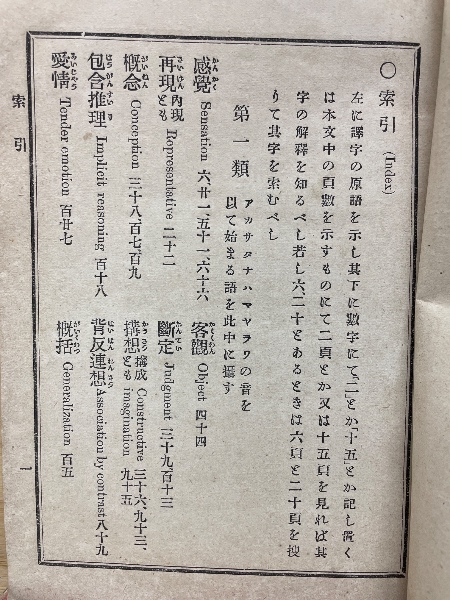 〇索引 (Index)
左に譯字の原語を示し其下に數字にて「二」とか「十五」とか記し置く
は本文中の頁數を示すものにて二頁とか又は十五頁を見れば其
字の解釋を知るべし若し六、二十とあるときは六頁と二十頁を捜
りて其字を索むべし
第一類 アカサタナハマヤラワの音を
以て始まる語を此中に攝す
感覺 かんかく Sensation 六廿一、五十一、六十六
再現 さいげん 內現とも Representative 二十二
概念 がいねん Conception 三十八、百七、百九
包含推理 はうがんすいり Implicit reasoning 百十八
愛情 あいじやう Tender emotion 百廿七
客觀 かくくわん Object 四十四
斷定 だんてい Judgment 三十九、百十三
搆想 かうさう 搆成とも Constructive imagination 三十六、九十三、九十五
背反連想 はいはんれんさう Association by contrast 八十九
概括 がいくわつ Generalization 百五
索引
一